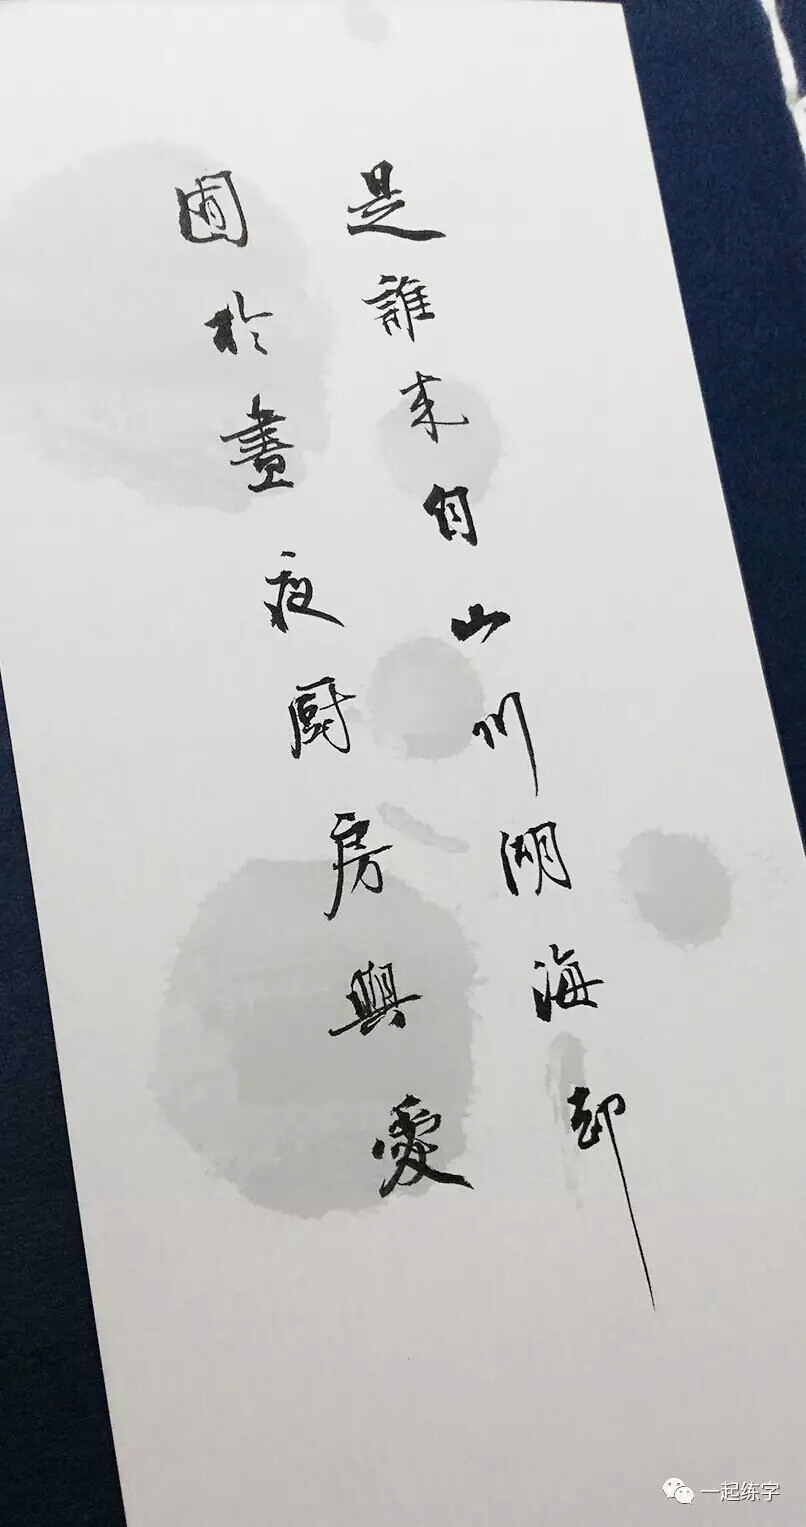 是誰來自山川湖海卻
囿於晝夜厨房與愛
一起练字